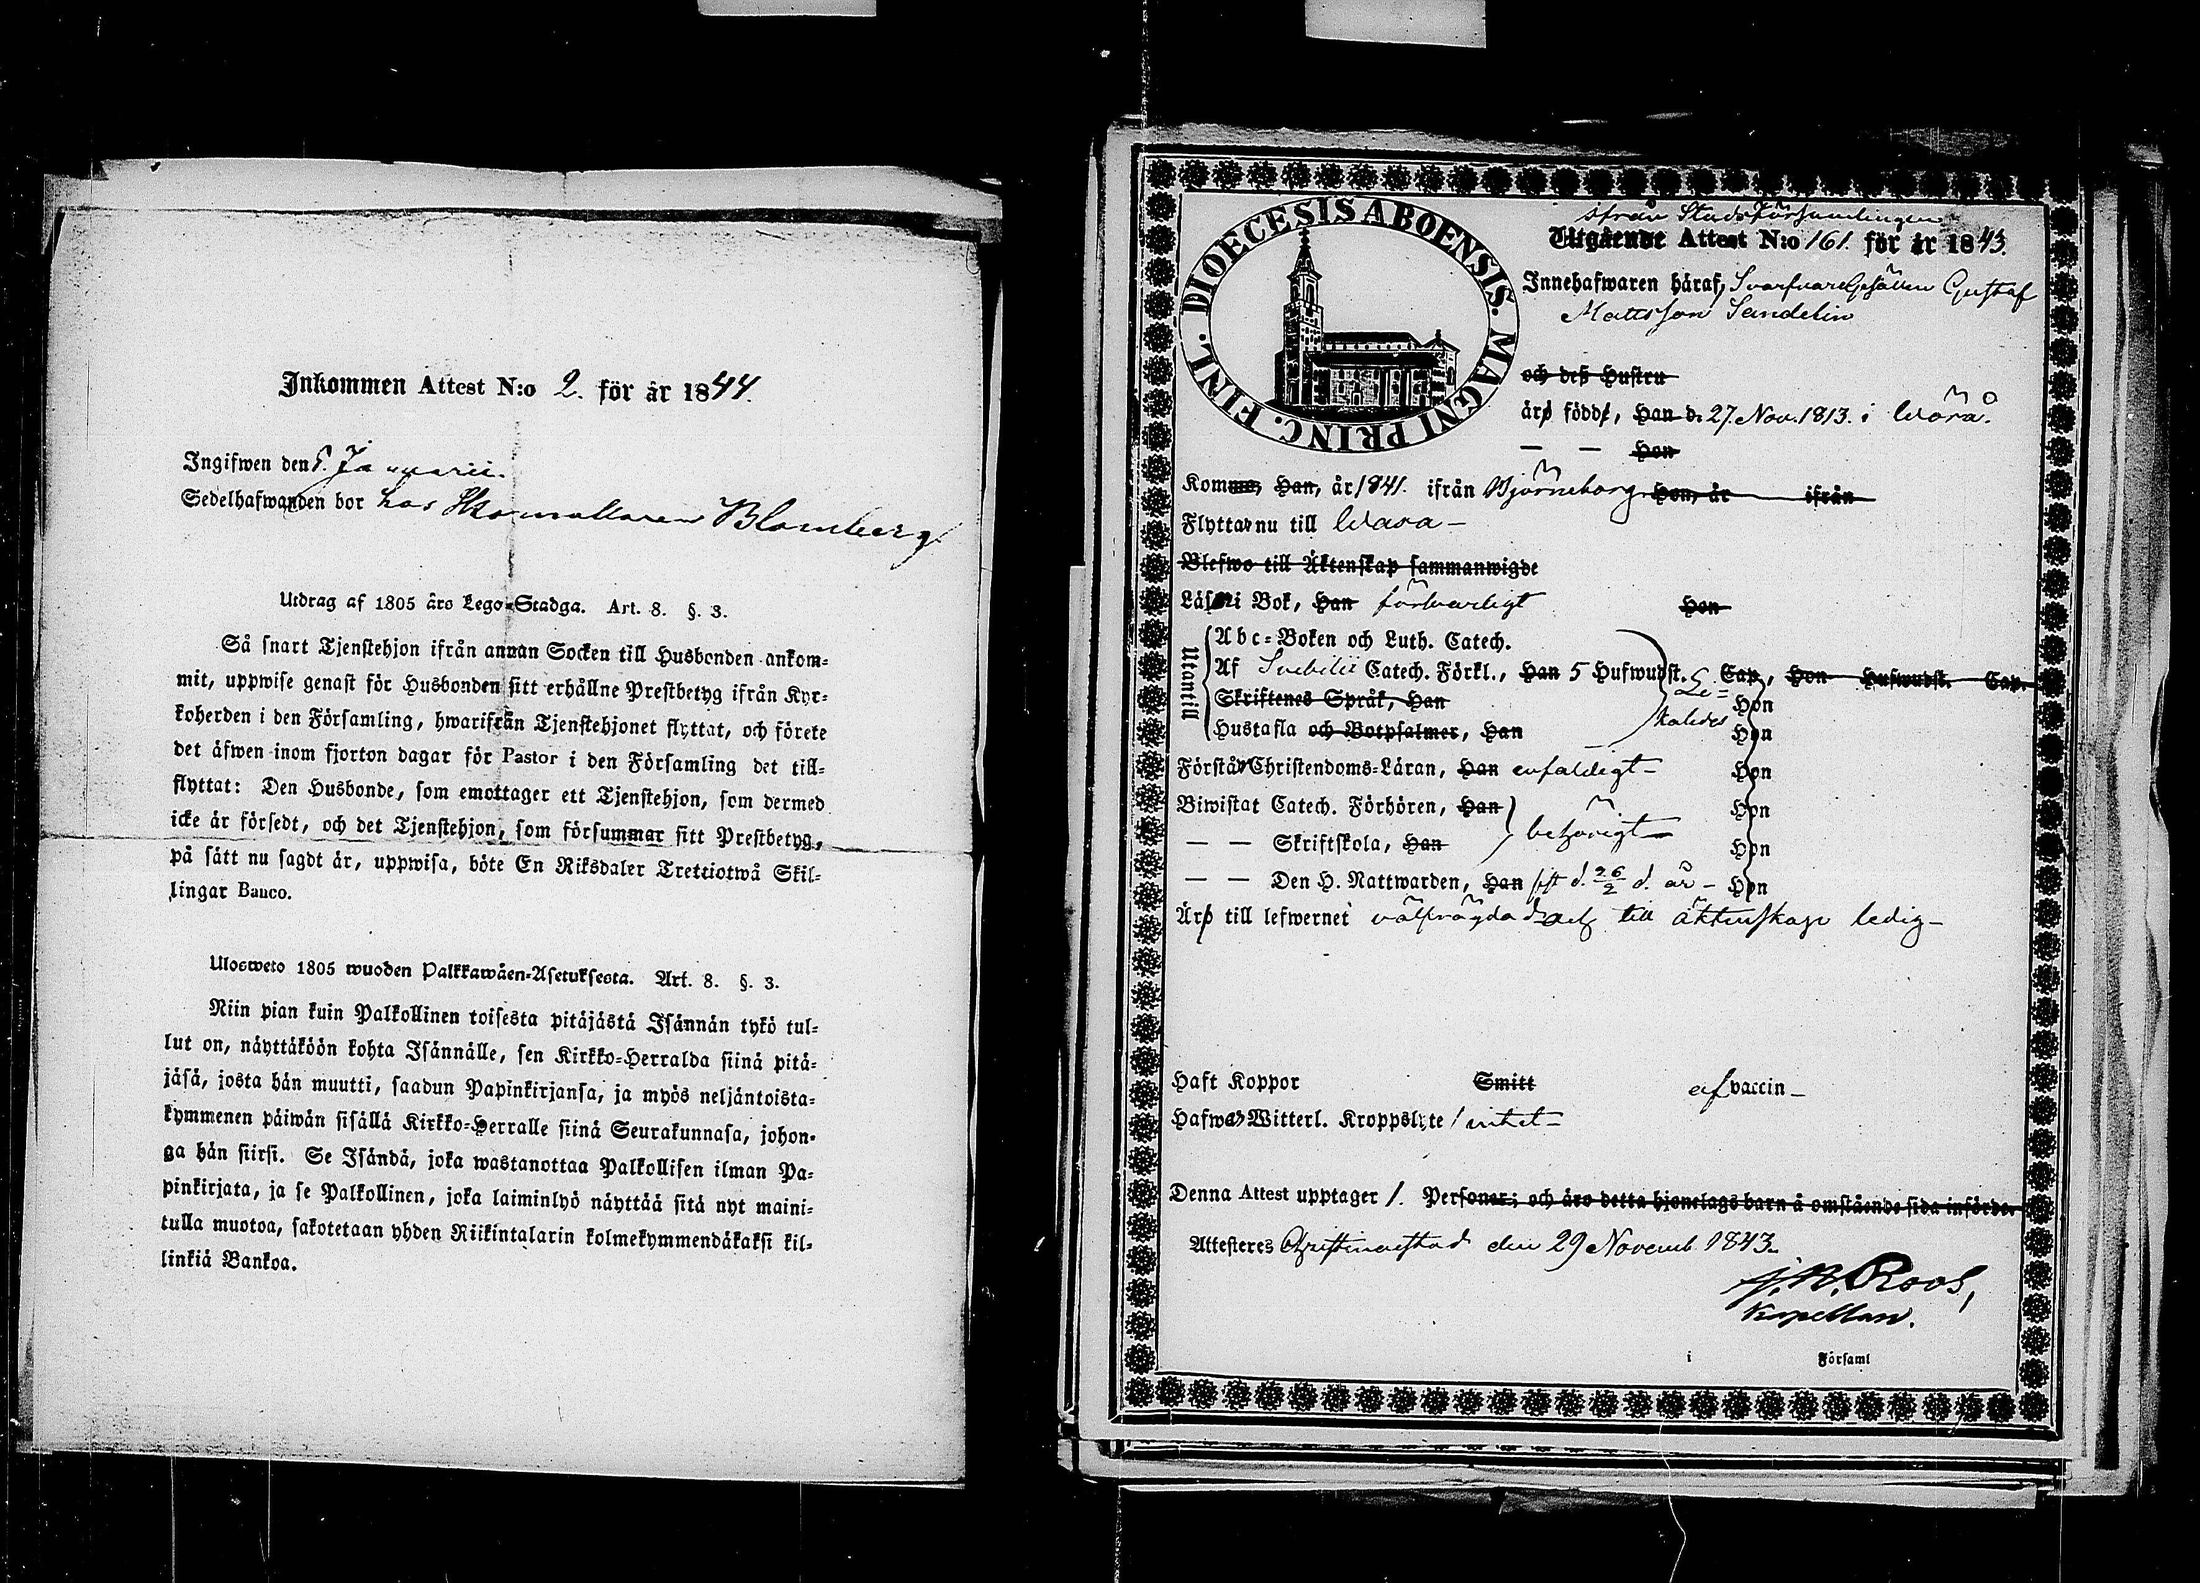 Inkommen Attest N:o 2. för år 1844.
Ingifwen den 5. Januarii.
Sedelhafwanden bor hos Blomberg
Utdrag af 1805 års Lego-Stadga. Art. 8. §. 3.
Så snart Tjenstehjon ifrån annan Socken till Husbonden ankom-
mit, uppwise genast för Husbonden sitt erhållne Prestbetyg ifrån Kyr-
koherden i den Församling, hwarifrån Tjenstehjonet flyttat, och förete
det äfwen inom fjorton dagar för Pastor i den Församling det till-
flyttat: Den Husbonde, som emottager ett Tjenstehjon, som dermed
icke är försedt, och det Tjenstehjon, som försummar sitt Prestbetyg,
på sätt nu sagdt är, uppwisa, böte En Riksdaler Trettiotwå Skil-
lingar Banco.
Ulosweto 1805 wuoden Palkkawäen-Asetuksesta. Art. 8. §. 3.
Niin pian kuin Palkollinen toisesta pitäjästä Isännän tykö tul-
lut on, näyttäköön kohta Isännälle, sen Kirkko-Herralda siinä pitä-
jäsä, josta hän muutti, saadun Papinkirjansa, ja myös neljäntoista-
kymmenen päiwän sisällä Kirkko-Herralle siinä Seurakunnasa, johon-
ga hän siirsi. Se Isändä, joka wastanottaa Palkollisen ilman Pa-
pinkirjata, ja se Palkollinen, joka laiminlyö näyttää sitä nyt maini-
tulla muotoa, sakotetaan yhden Riikintalarin kolmekymmendäkaksi kil-
linkiä Bankoa.
DIOECESIS ABOENSIS. MAGNI PRINC. FINL.
ifrån Stadsförsamlingen
Utgående Attest N:o 161. för år 1843.
Innehafwaren häraf, SvarfvareGesällen Gustaf
Mattsson Sandelin
och deß Hustru
äro födde, Han d. 27. Nov. 1813. i Wörå.
— — Hon
Komne, Han, år 1841. ifrån Björneborg Hon, år ifrån
Flyttar nu till Wasa –
Blefwo till Äktenskap sammanwigde
Läser i Bok, Han försvarligt Hon
Utantill
Abc-Boken och Luth. Catech.
Af Svebilii Catech. Förkl., Han 5 Hufwudst. Cap., Hon Hufwudst. Cap.
Skriftenes Språk, Han Hon
Hustafla och Botpsalmer, Han Hon
Förstår Christendoms-Läran, Han enfaldigt – Hon
Biwistat Catech. Förhören, Han Hon
behörigt
— — Skriftskola, Han Hon
— — Den H. Nattwarden, Han sist d. 26/2 d. år – Hon
Äro till lefwernet välfrägdad och till äktenskap ledig –
Haft Koppor Smitt af vaccin –
Hafwer Witterl. Kroppslyte / intet –
Denna Attest upptager 1. Personer; och äro detta hjonelags barn å omstående sida införde.
Attesteres Christinæstad den 29 Novemb. 1843.
J. B. Roos,
Kapellan.
i Församl